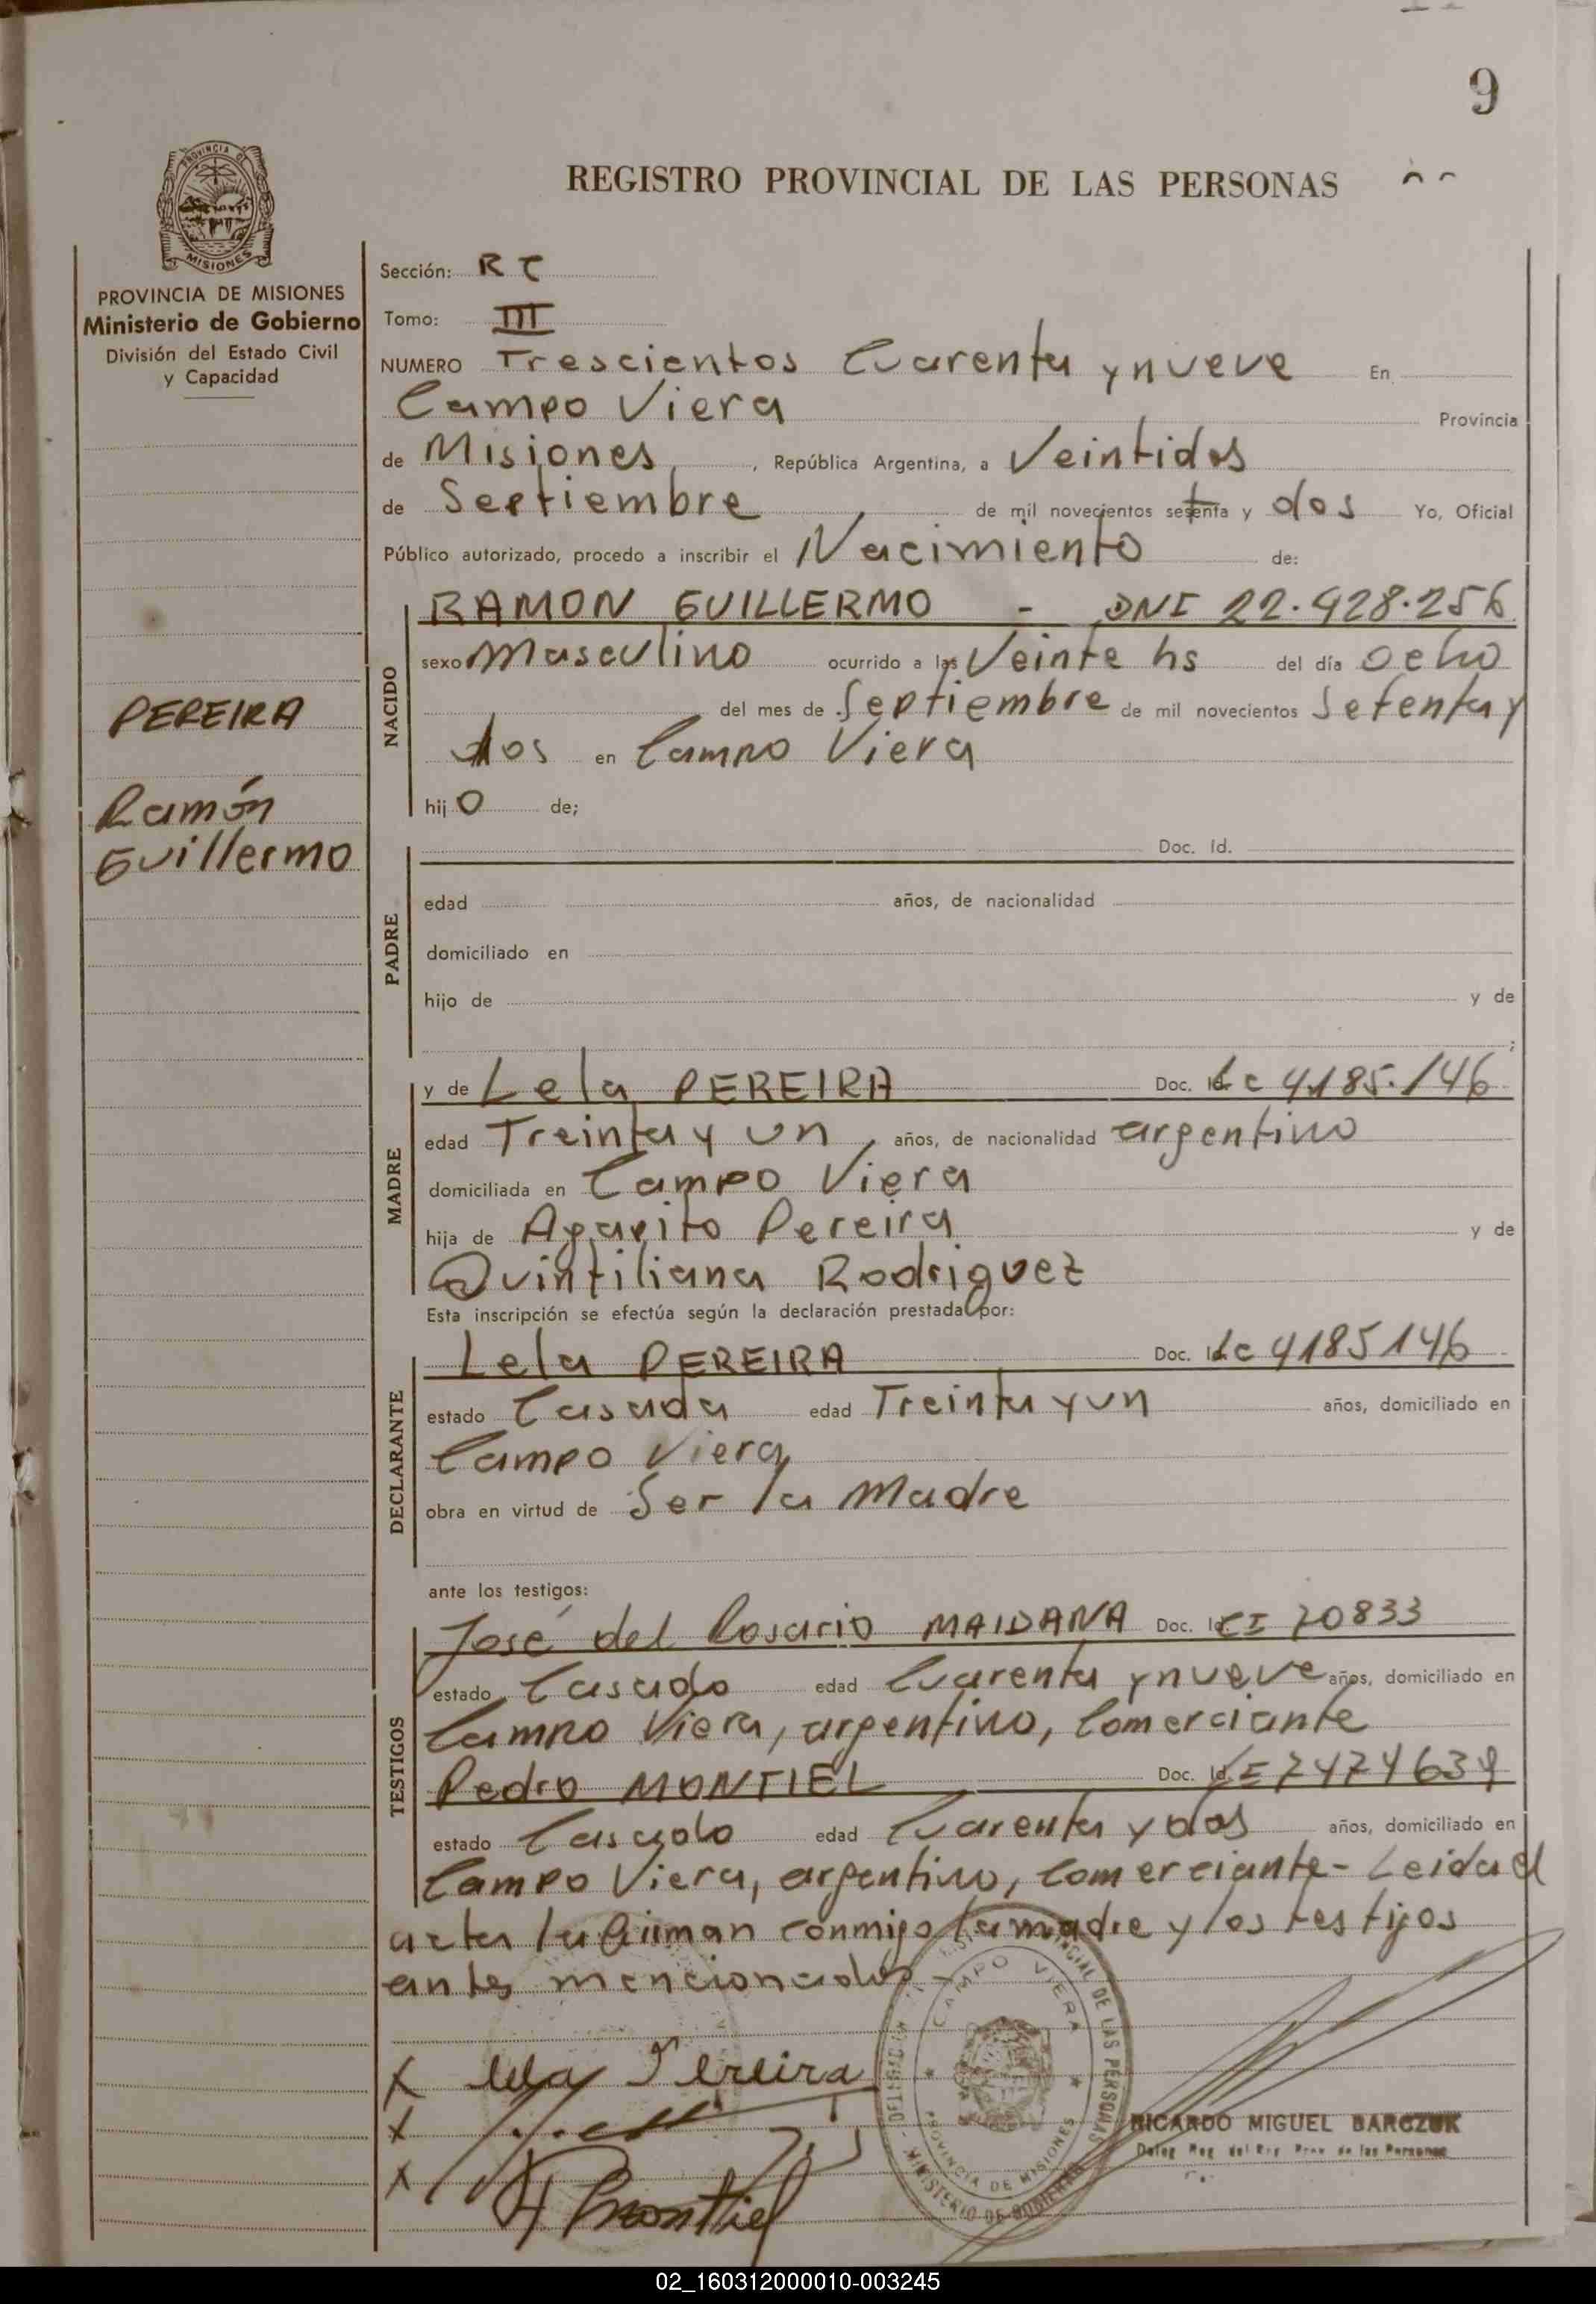 9
REGISTRO PROVINCIAL DE LAS PERSONAS
PROVINCIA DE MISIONES
Ministerio de Gobierno
División del Estado Civil
y Capacidad
PEREIRA
Ramón
Guillermo
Sección: RC
Tomo: III
NUMERO Trescientos Cuarenta y nueve En
Campo Viera Provincia
de Misiones, República Argentina, a Veintidos
de Septiembre de mil novecientos setenta y dos Yo, Oficial
Público autorizado, procedo a inscribir el Nacimiento de:
NACIDO
RAMON GUILLERMO - DNI 22.928.256
sexo Masculino ocurrido a las Veinte hs del día ocho
del mes de Septiembre de mil novecientos Setenta y
dos en Campo Viera
hijo de;
PADRE
Doc. Id.
edad años, de nacionalidad
domiciliado en
hijo de y de
;
MADRE
y de Lela PEREIRA Doc. Id. Lc 4.185.146
edad Treinta y un, años, de nacionalidad argentino
domiciliada en Campo Viera
hija de Agapito Pereira y de
Quintiliana Rodriguez
Esta inscripción se efectúa según la declaración prestada por:
DECLARANTE
Lela PEREIRA Doc. Id. Lc 4185146
estado Casada edad Treinta y un años, domiciliado en
Campo Viera
obra en virtud de Ser la Madre
ante los testigos:
TESTIGOS
José del Rosario MAIDANA Doc. Id. CI 70833
estado Casado edad Cuarenta y nueve años, domiciliado en
Campo Viera, argentino, Comerciante
Pedro MONTIEL Doc. Id. 7474639
estado Casado edad Cuarenta y dos años, domiciliado en
Campo Viera, argentino, Comerciante- Leida el
acta la firman conmigo la madre y los testigos
antes mencionados
x Lela Pereira
x
x
Montiel
CAMPO VIERA
PROVINCIA DE MISIONES
MINISTERIO DE GOBIERNO
RICARDO MIGUEL BARCZUK
Deleg. Reg. del Reg. Prov. de las Personas
02_160312000010-003245